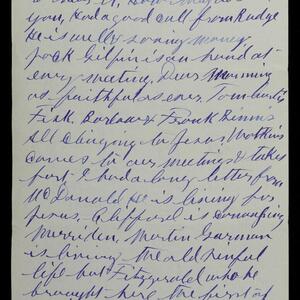 you, had a good call from Rudge
He is are by saving money
Jack Gilpin is on hand at
every meeting, Dave Manning
as faithful as ever, Tom Curtis
Fisk, Barlow & Frank Binns
all clinging to Jesus, Watkins
comes to our meetings & takes
part. I had a long letter from
McDonald He is living for
Jesus, Clifford is canvassing
Meriden, Martin Garman
is living the old sinful
life but Fitzgerald who he
brought here the first of